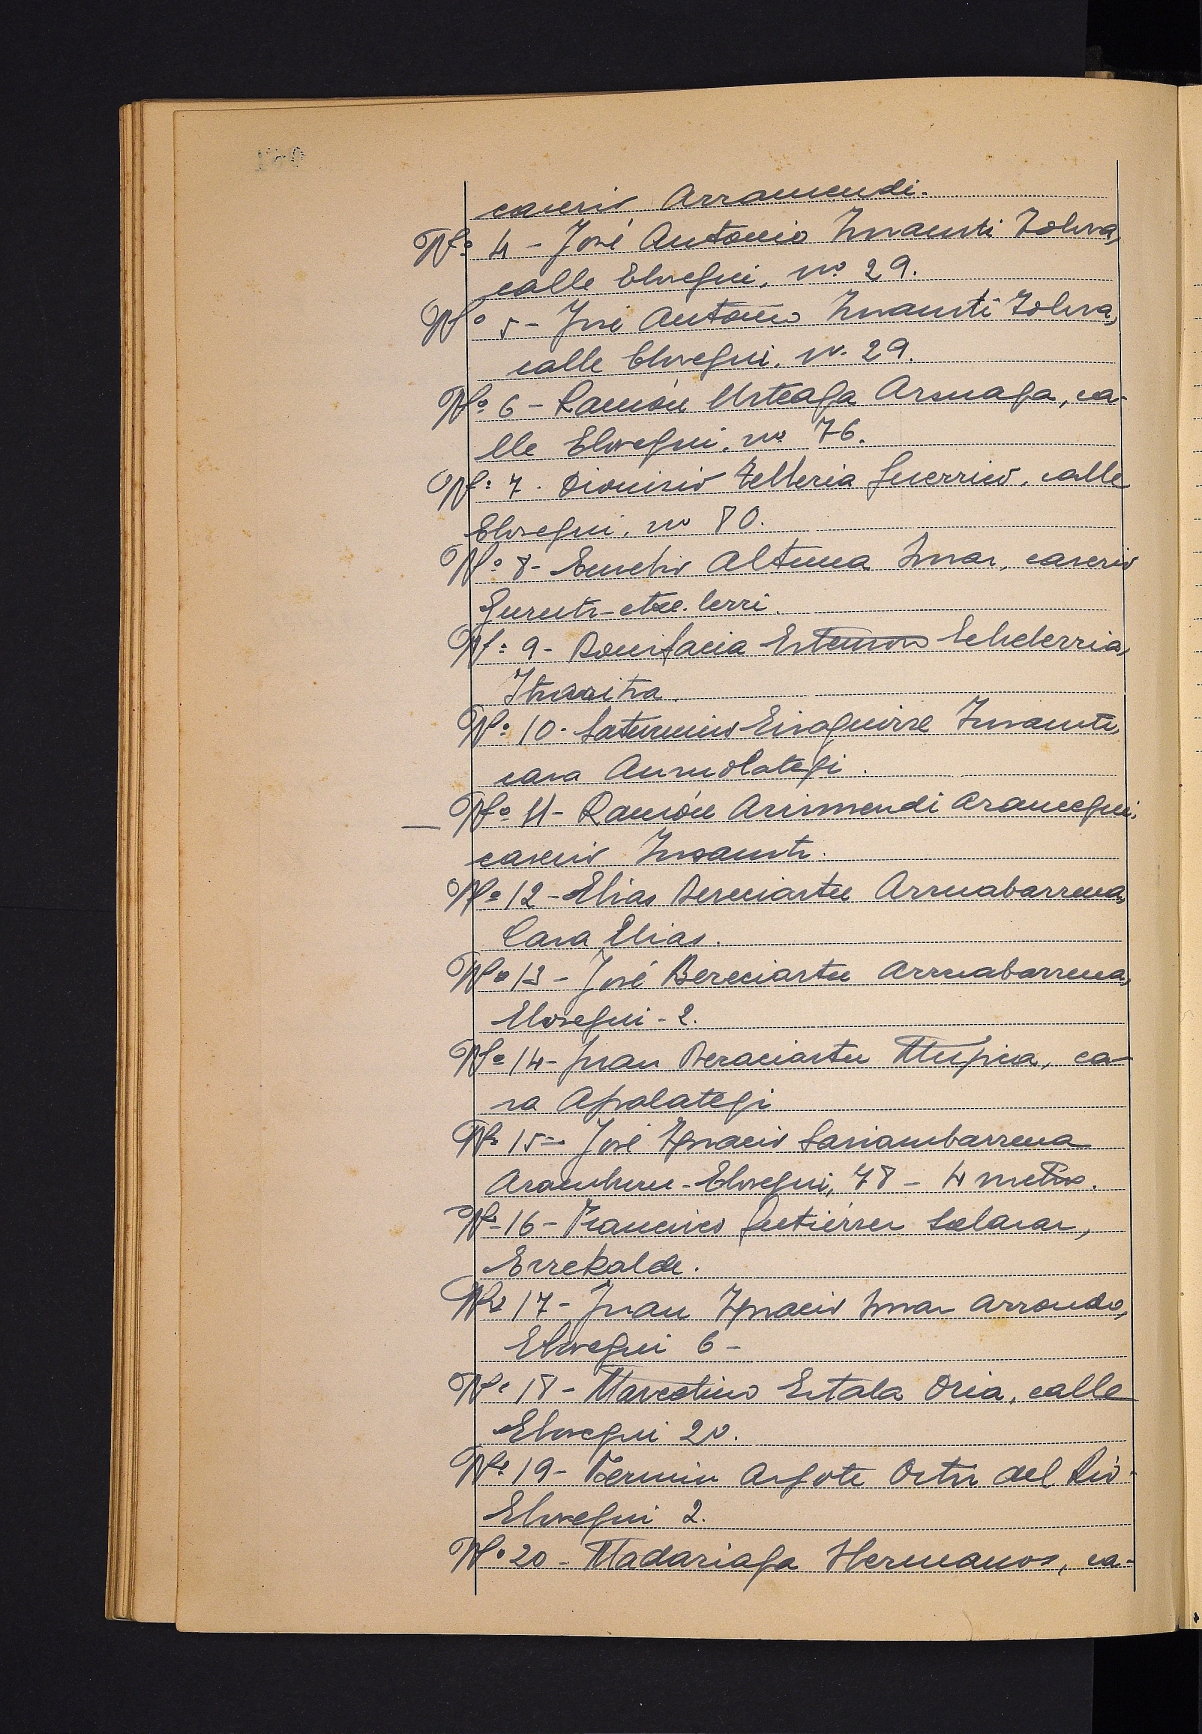 caserio Arramendi.
Nº 4 - José Antonio Insausti Zolina,
calle Elosegui, nº 29.
Nº 5 - José Antonio Insausti Zolina,
calle Elosegui, nº 29.
Nº 6 - Ramón Urteaga Arsuaga, ca-
lle Elosegui, nº 76.
Nº 7. Dionisio Telleria Guerrico, calle
Elosegui, nº 80.
Nº 8 - Altuna Imaz, caserio
berri.
Nº 9 - Bonifacia Echeberria,
Nº 10. Saturnino Eizaguirre Insausti,
casa
Nº 11 - Ramón Arizmendi Arancegui,
caserio Insausti.
Nº 12 - Elias Bereciartu Arruabarrena,
Casa Elias.
Nº 13 - José Bereciartu Arruabarrena,
Elosegui - 2.
Nº 14 - Juan Beraciartu Mugica, ca-
sa
Nº 15 - José Ignacio Sarianbarrena
Aramburu - Elosegui, 78 - 4 metros.
Nº 16 - Francisco Gutiérrez Salazar,
Errekalde.
Nº 17 - Juan Ignacio Imaz Arrondo,
Elosegui 6 -
Nº 18 - Marcelino Estala Oria, calle
Elosegui 20.
Nº 19 - Fermin Argote Ortiz del Rio -
Elosegui 2.
Nº 20 - Madariaga Hermanos, ca-